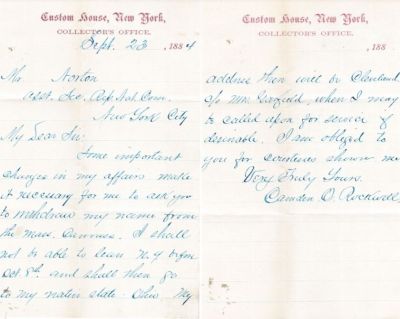 Custom House, New York,
COLLECTOR'S OFFICE.
Sept. 23, 1884
Mr Norton
asst. Sec. Rep. Nat. Com.
New York City
My Dear Sir:
Some important
changes in my affairs make
it necessary for me to ask you
to withdraw my name from
the Mass. Canvass. I shall
not be able to leave N.Y. before
Oct 8th and shall then go
to my native state - Ohio. My
Custom House, New York,
COLLECTOR'S OFFICE.
188
address then will be Cleveland
c/o Mrs. Garfield, when I may
be called upon for service if
desirable. I am obliged to
you for courtesies shown me
Very Truly Yours.
Camden O. Rockwell